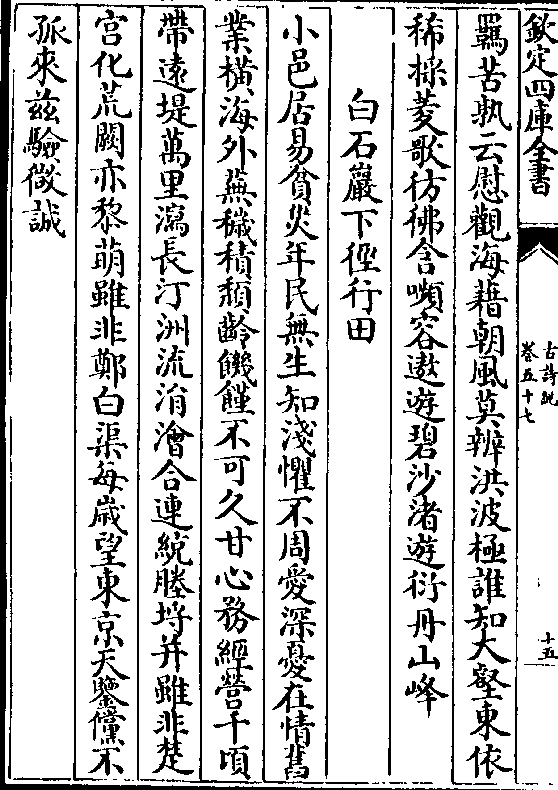 欽定四庫全書
古詩紀
卷五十七
十五
羈苦孰云慰觀海藉朝風莫辨洪波極誰知大壑東依
稀採菱歌彷彿含嚬容遨遊碧沙渚遊衍丹山峰
白石巖下徑行田
小邑居易貧災年民無生知淺懼不周愛深憂在情舊
業横海外蕪穢積頹齡饑饉不可久甘心務經營千頃
帶遠堤萬里瀉長汀洲流涓澮合連統塍埒并雖非楚
宮化荒闕亦黎萌雖非鄭白渠每歲望東京天鑒儻不
孤來茲驗微誠